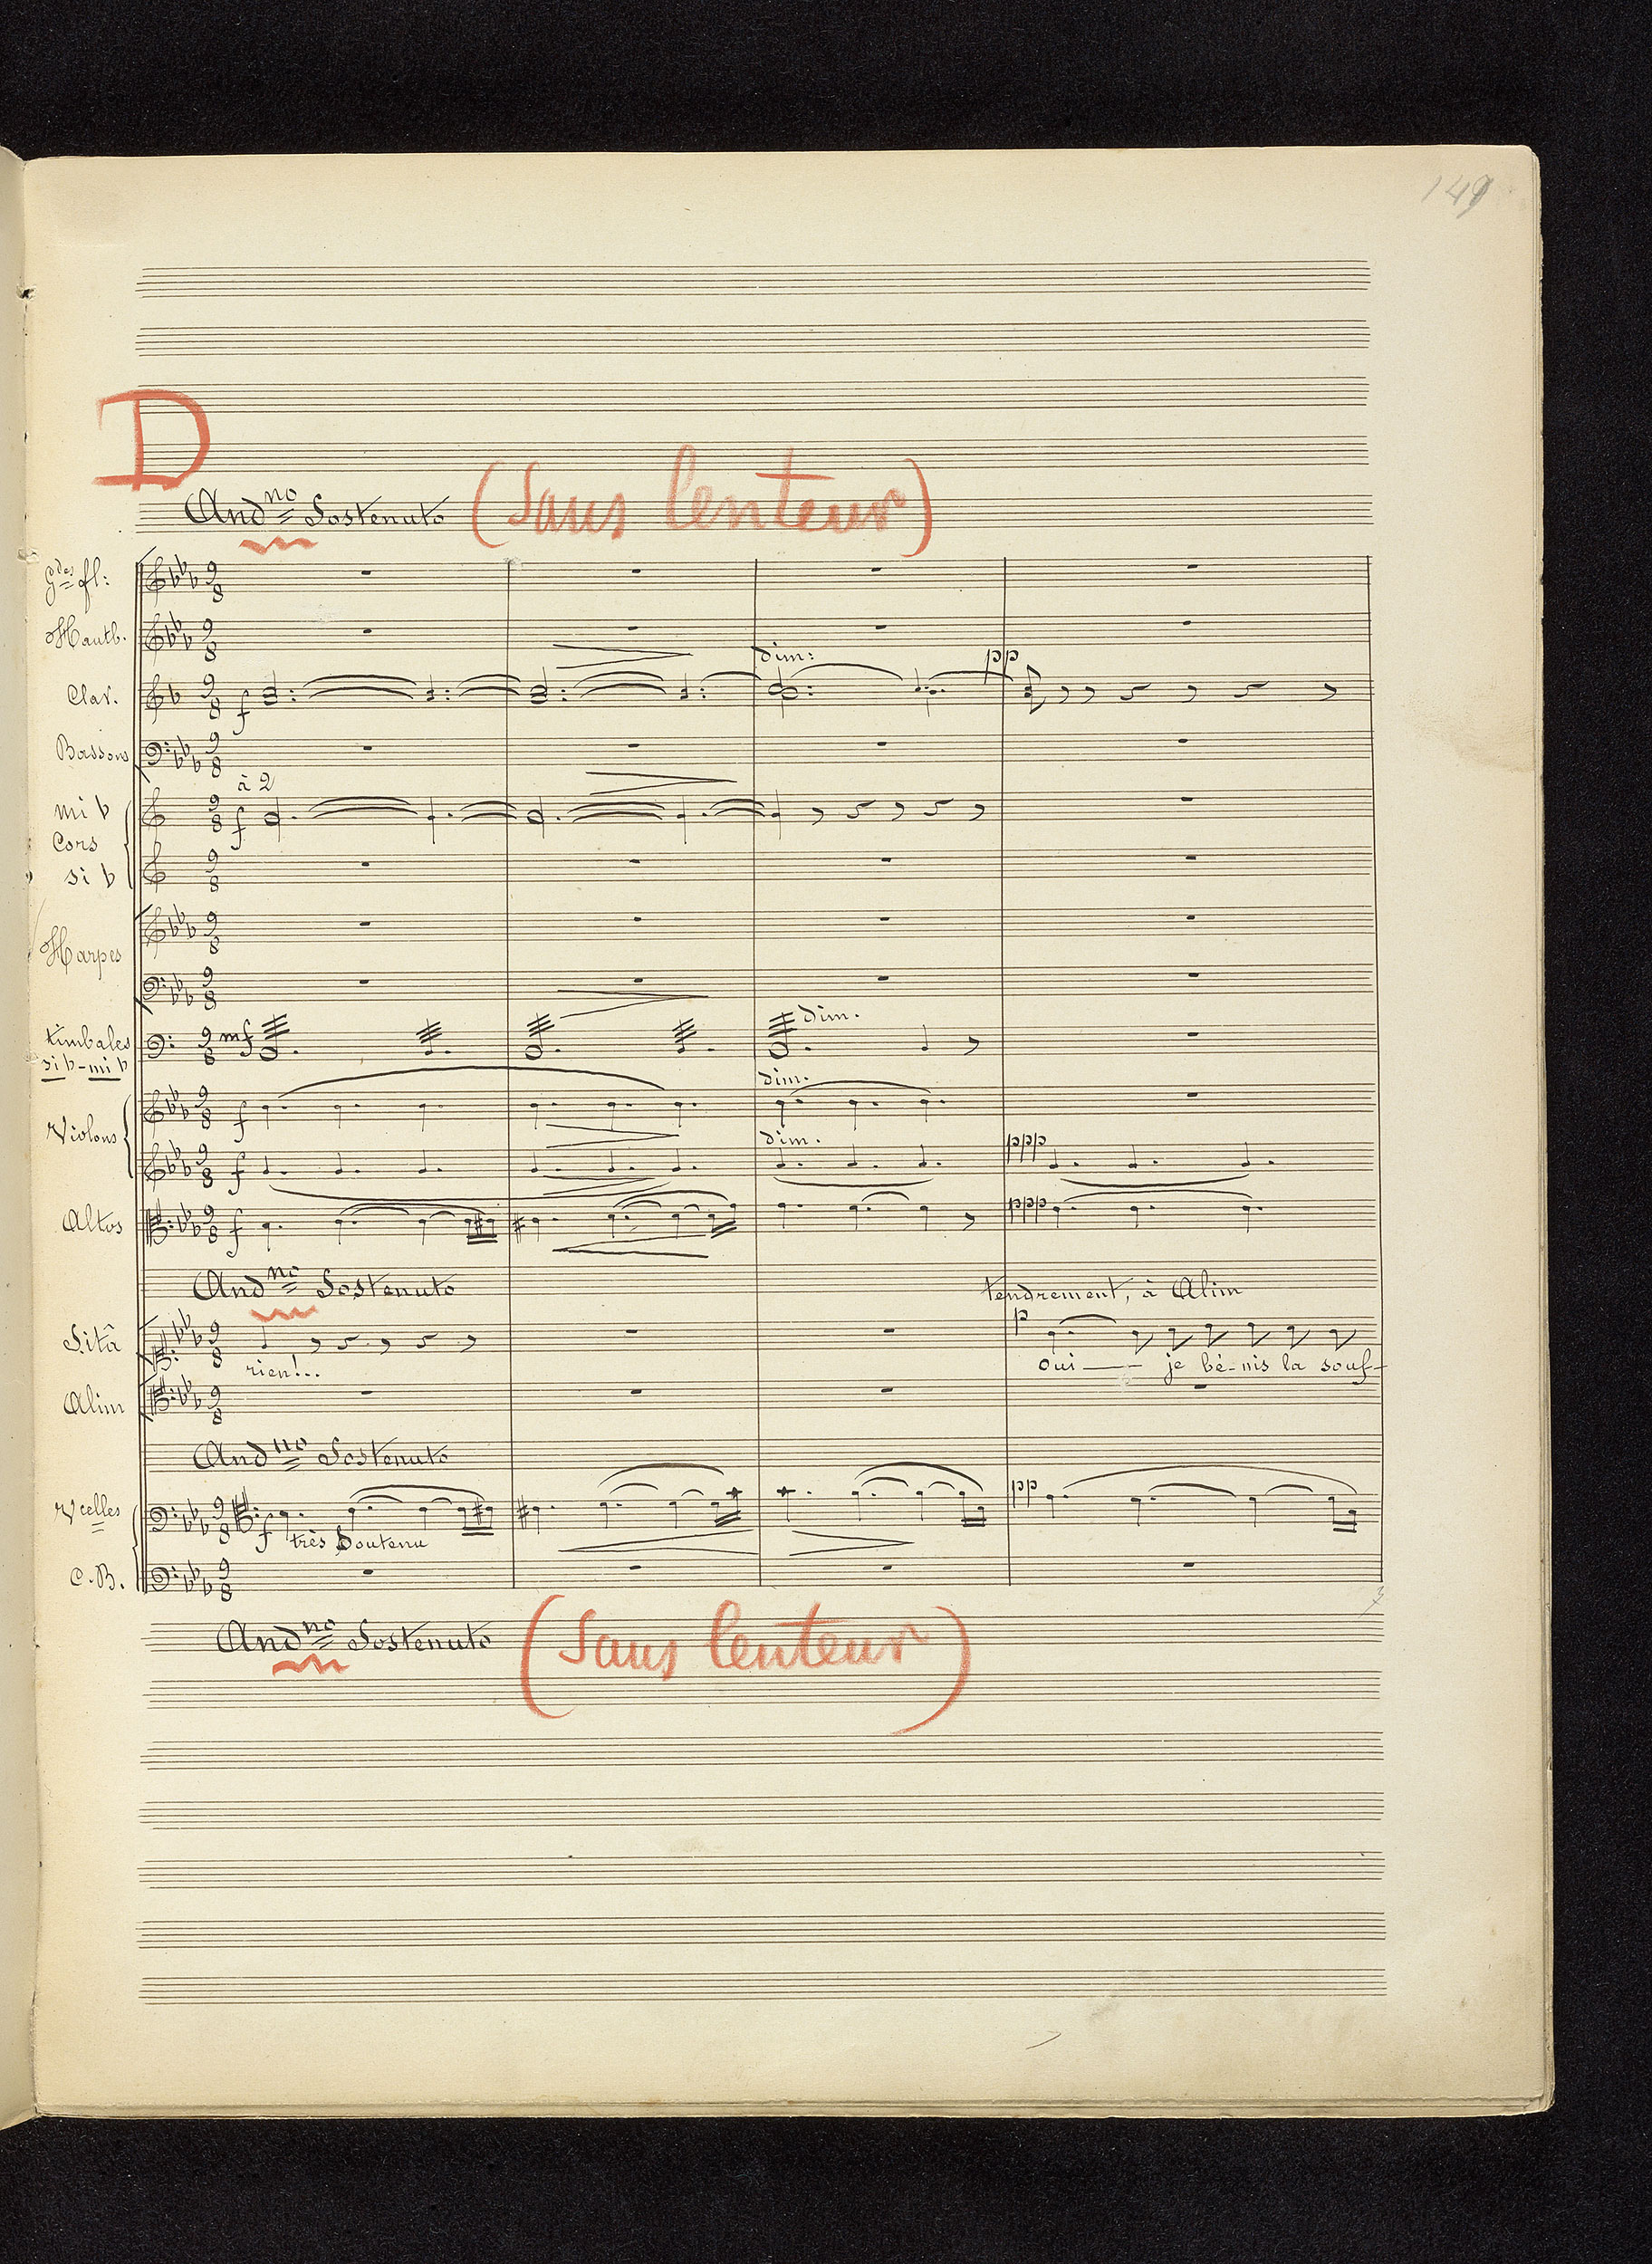 149
D
And.no Sostenuto (Sans lenteur)
Gdes fl:
Hautb.
dim: pp
Clar. f
Bassons
à 2
mi b f
Cors
si b
Harpes
timbales mf dim.
si b - mi b
dim.
Violons f
dim. ppp
f
Altos f ppp
Andno Sostenuto tendrement, à Alim
Sitâ p
rien!.. oui — je bé-nis la souf-
Alim
Andno Sostenuto
Vcelles f très Soutenu pp
C.B.
Andno Sostenuto (Sans lenteur)